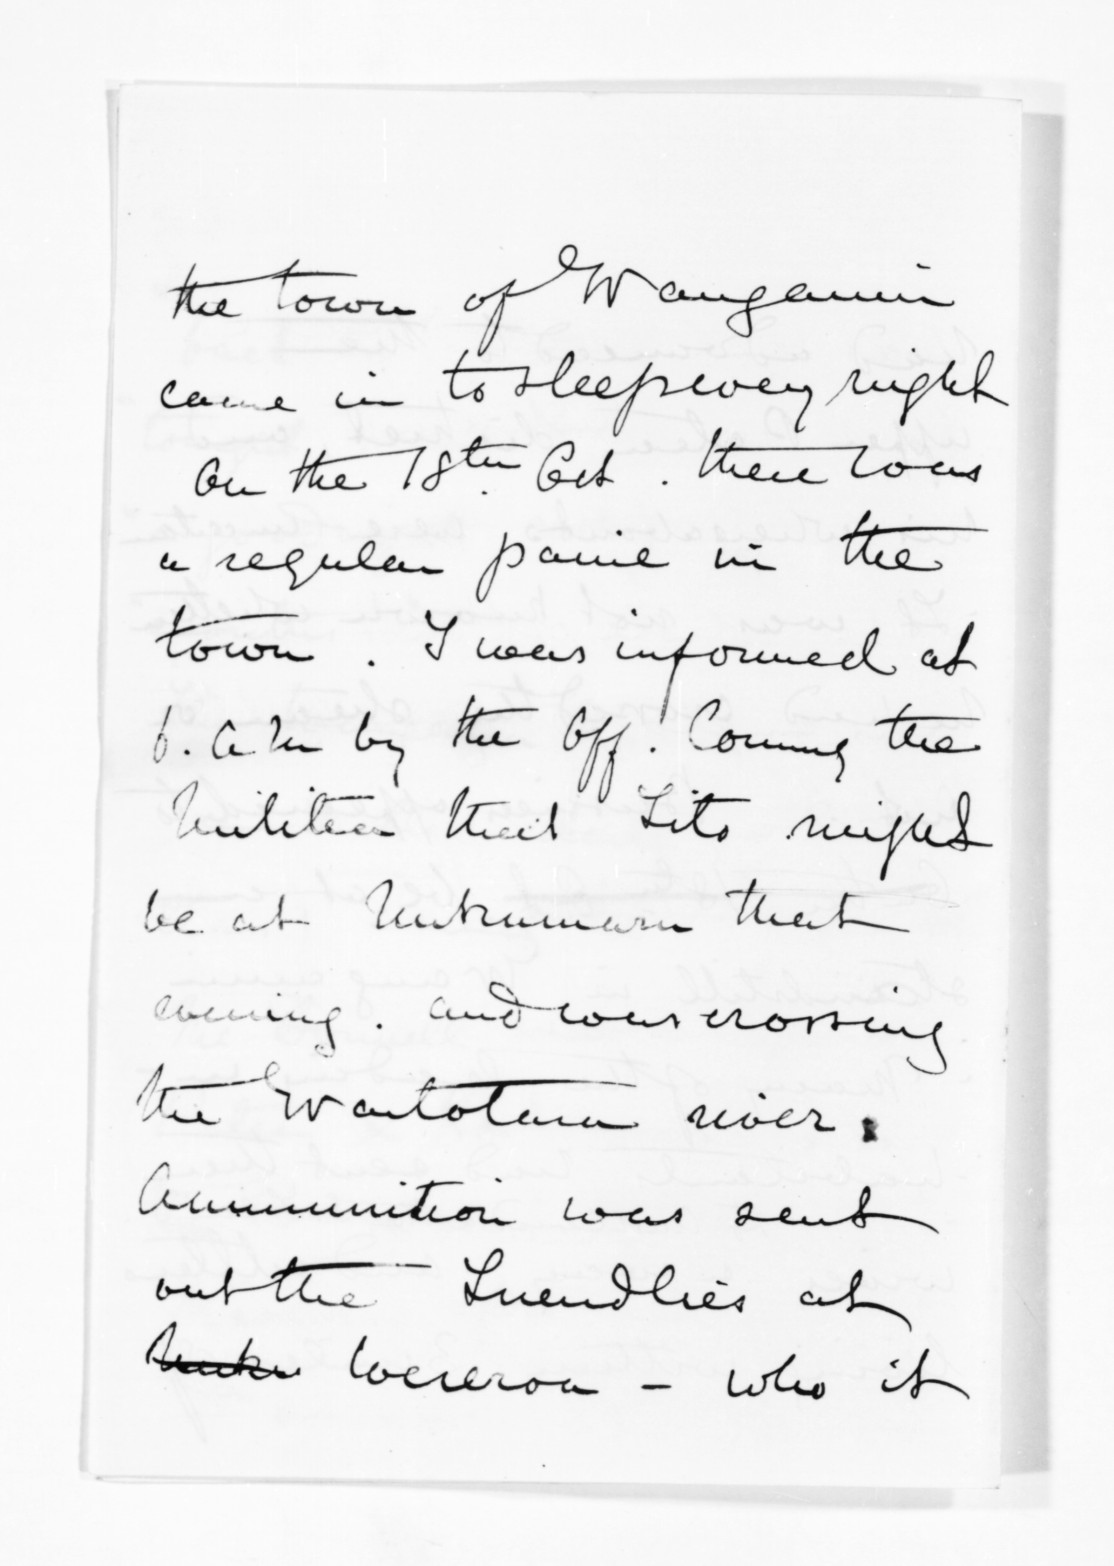 the town of Wanganui
came in to sleep every night
On the 18th. Oct. there was
a regular panic in the
town. I was informed at
6. a m by the Off. Comng the
Militia that Tito might
be at Nukumaru that
evening. and was crossing
the Waitotara river.
Ammunition was sent
out the Friendlies at
Nuku Wereroa - who it